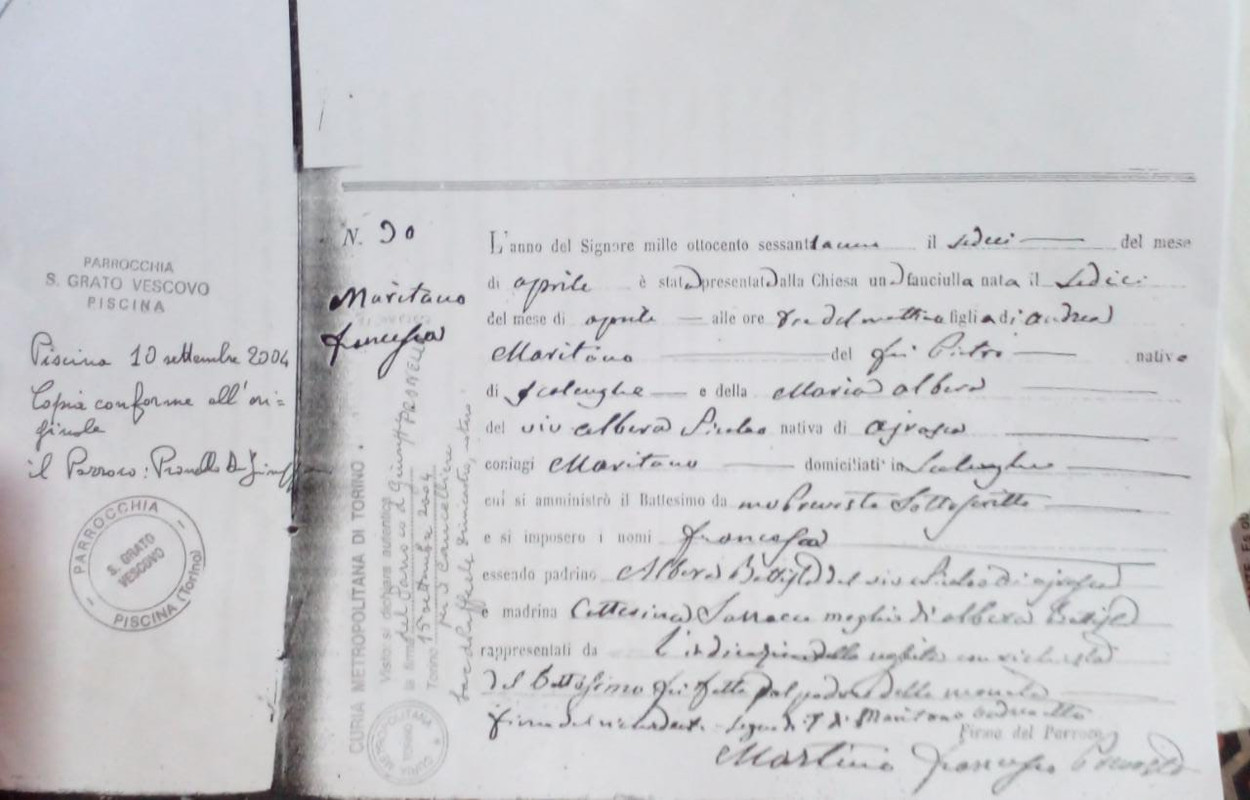 PARROCCHIA
S. GRATO VESCOVO
PISCINA
Piscina 10 settembre 2004
Copia conforme all'ori=
ginale
il Parroco:
PARROCCHIA
S. GRATO
VESCOVO
PISCINA (Torino)
N. 30
Maritano
francesca
CURIA METROPOLITANA DI TORINO
Visto si dichiara autentica
la firma del
Torino 15 settembre 2004
CURIA METROPOLITANA
TORINO
L'anno del Signore mille ottocento sessant il sedici del mese
di aprile è stata presentata alla Chiesa una fanciulla nata il sedici
del mese di aprile alle ore tre del mattina figlia di andrea
Maritano del fu Pietro nativo
di Scalenghe e della Maria albera
del viv albera nativa di airasca
coniugi Maritano domiciliati in Scalenghe
cui si amministrò il Battesimo da me Sottoscritto
e si imposero i nomi francesca
essendo padrino Albera del viv di airasca
e madrina Catterina moglie di albera
rappresentati da L'indicazione della con richiesta
del Battesimo fu fatta dal padre della neonata
firma del richiedente Segno di di Maritano andrea
Firma del Parroco
Martino francesco